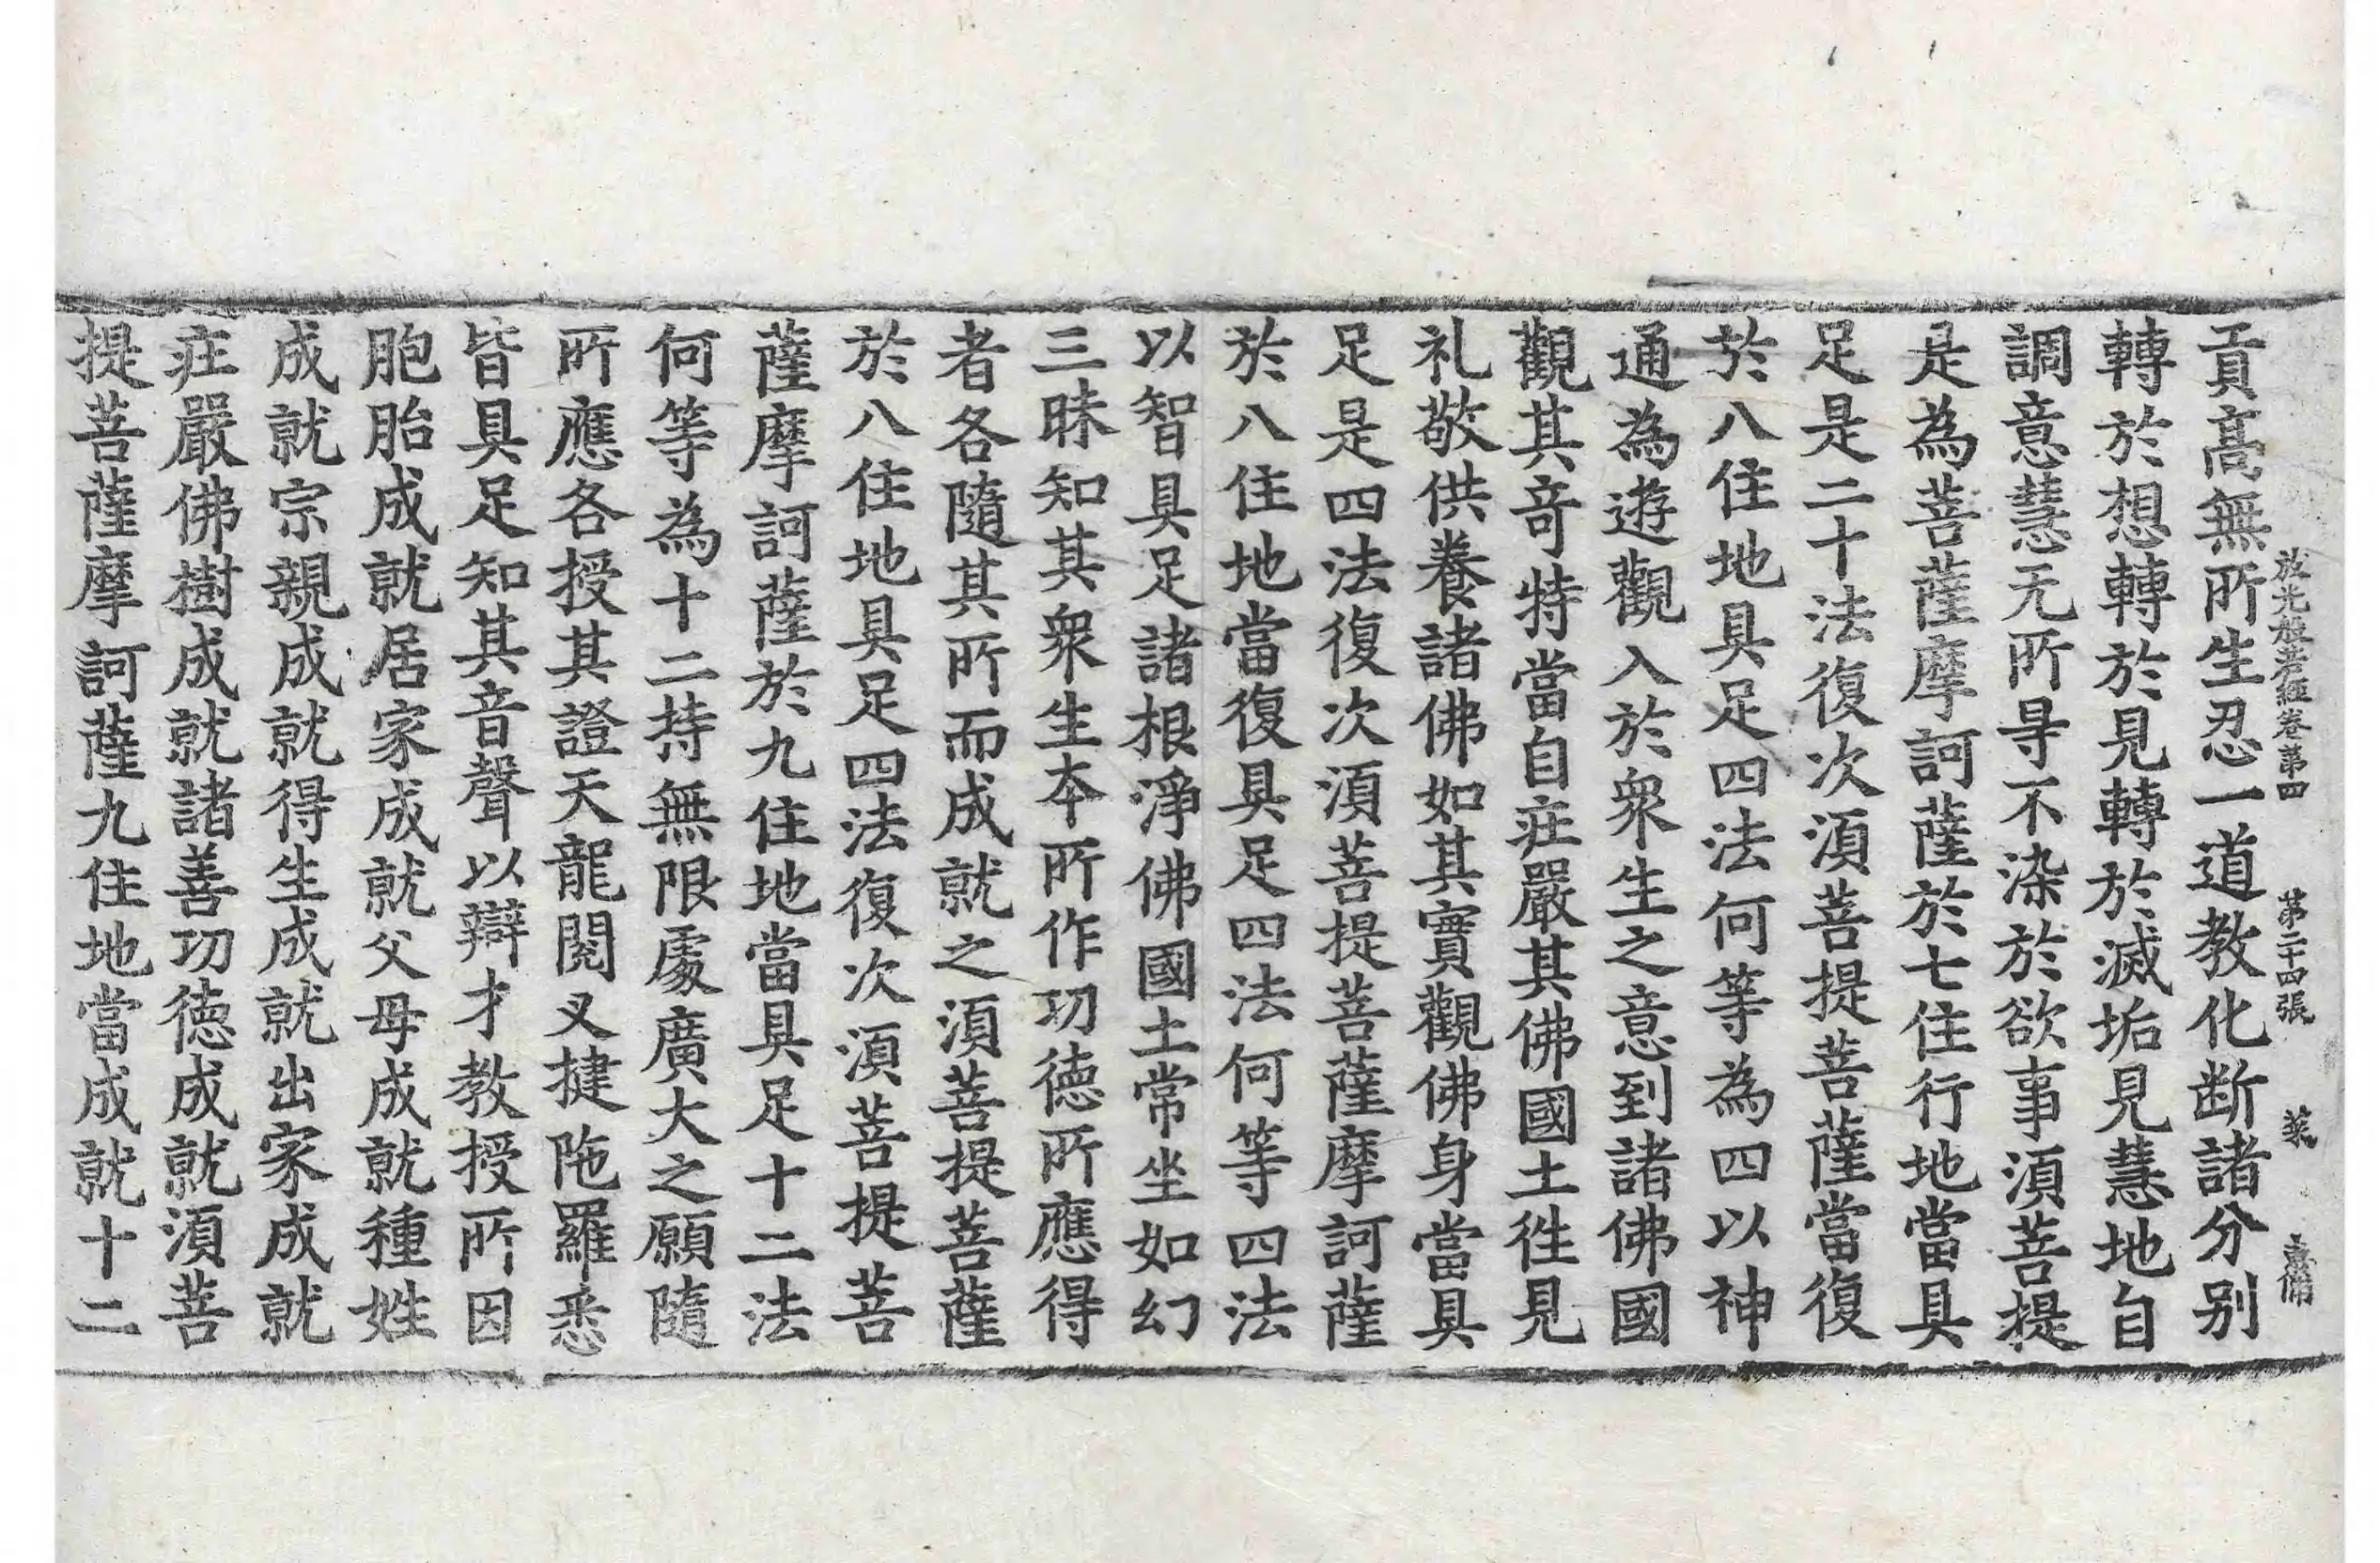 放光般若經卷第四 第二十四張 菜
貢高無所生忍一道教化断諸分别
轉於想轉於見轉於滅垢見慧地自
調意慧无所㝵不染於欲事湏菩提
是為菩薩摩訶薩於七住行地當具
足是二十法復次湏菩提菩薩當復
於八住地具足四法何等為四以神
通為遊觀入於衆生之意到諸佛國
觀其奇特當自莊嚴其佛國土徃見
礼敬供養諸佛如其實觀佛身當具
足是四法復次湏菩提菩薩摩訶薩
於八住地當復具足四法何等四法
以智具足諸根淨佛國土常坐如幻
三昧知其衆生夲所作功德所應得
者各隨其所而成就之湏菩提菩薩
於八住地具足四法復次湏菩提菩
薩摩訶薩於九住地當具足十二法
何等為十二持無限處廣大之願隨
所應各授其證天龍閱叉揵陁羅悉
皆具足知其音聲以辯才教授所因
胞胎成就居家成就父母成就種姓
成就宗親成就得生成就出家成就
莊嚴佛樹成就諸善功德成就湏菩
提菩薩摩訶薩九住地當成就十二